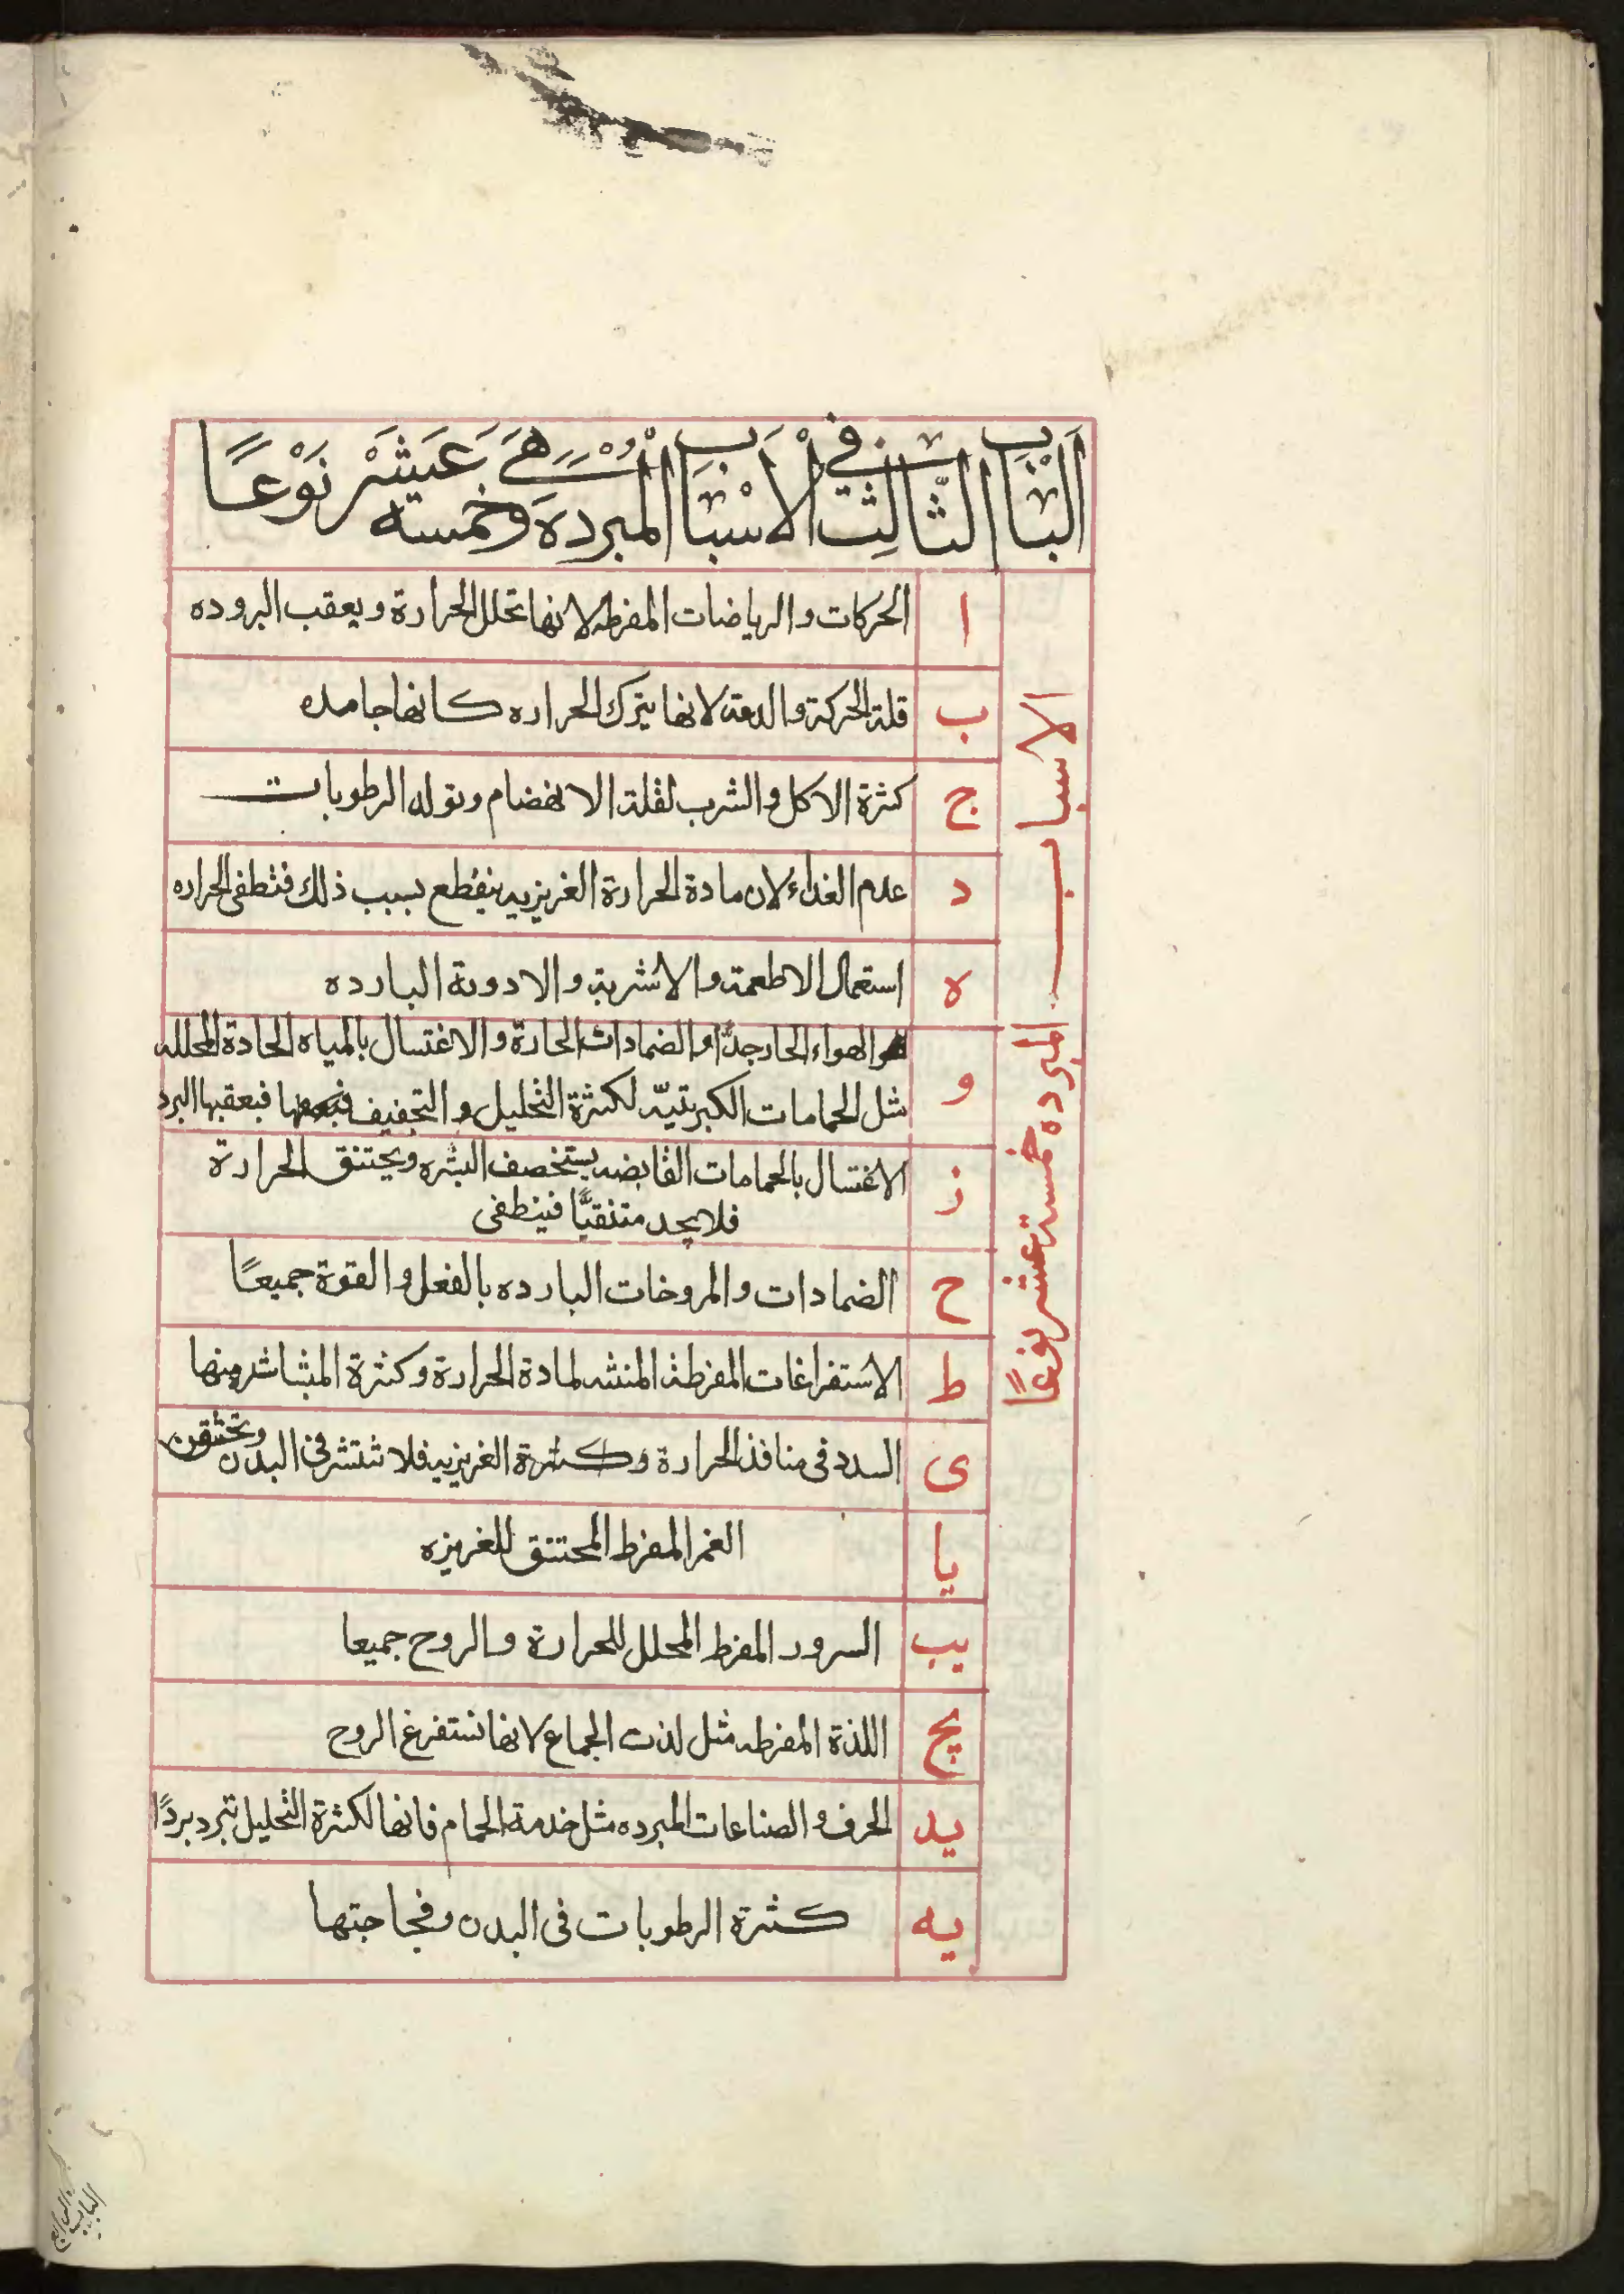 الباب الثالث في الاسباب المبرده وهي خمسة عشر نوعًا
الاسباب المبرده خمسة عشر نوعًا
ا الحركات والرياضات المفرطه لانها تحلل الحرارة ويعقب البروده
ب قلة الحركة والدعة لانها يترك الحراره كانها جامده
ج كثرة الاكل والشرب لقلة الانهضام وتولد الرطوبات
د عدم الغذاء لان مادة الحرارة الغريزيه ينقطع بسبب ذلك فتطفى الحراره
ه استعمال الاطعمة والاشربة والادوية البارده
و الهواء الحار جدًا والضمادات الحارة والاغتسال بالمياه الحادة المحلله
مثل الحمامات الكبريتيّه لكثرة التحليل والتجفيف فيعقبها البرد
ز الاغتسال بالحمامات القابضه يستخصف البشره ويختنق الحرارة
فلا يجد متنقيًّا فينطفى
ح الضمادات والمروخات البارده بالفعل والقوة جميعًا
ط الاستفراغات المفرطة لمادة الحرارة وكثرة منها
ى السدد فى منافذ الحرارة وكثرة الغريزيه فلا تنتشر فى البدن وتختقن
يا الغم المفرط المختنق للغريزه
يب السرور المفرط المحلل للحرارة والروح جميعا
يج اللذة المفرطه مثل لذت الجماع لانها تستفرغ الروح
يد الحرف والصناعات المبرده مثل خدمة الحمام فانها لكثرة التحليل تبرد بردًا
يه كثرة الرطوبات فى البدن وفجاجتها
الباب الرابع